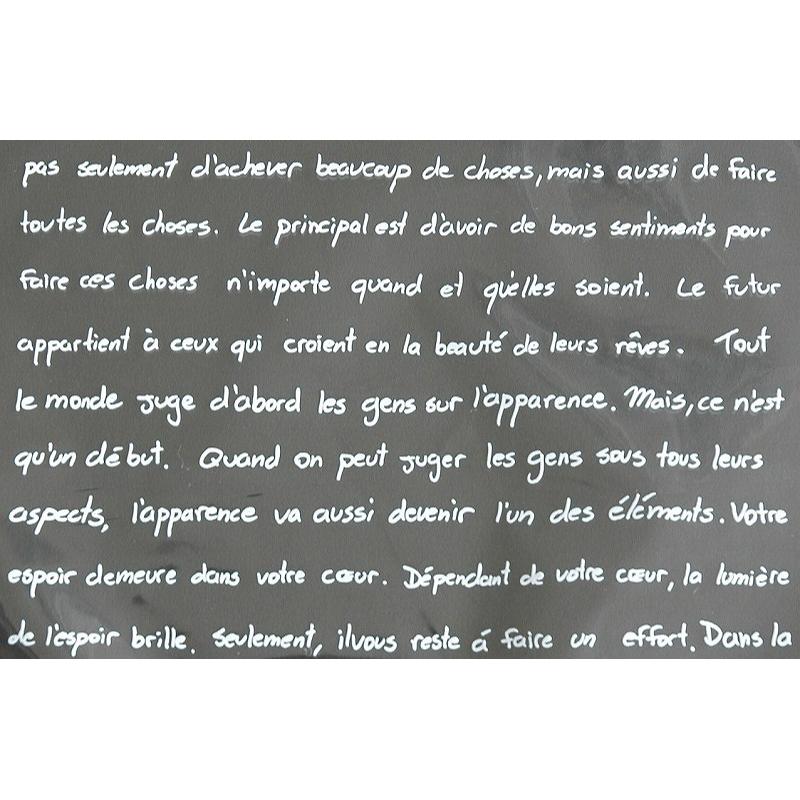 pas seulement d'achever beaucoup de choses, mais aussi de faire
toutes les choses. Le principal est d'avoir de bons sentiments pour
faire ces choses n'importe quand et qu'elles soient. Le futur
appartient à ceux qui croient en la beauté de leurs rêves. Tout
le monde juge d'abord les gens sur l'apparence. Mais, ce n'est
qu'un début. Quand on peut juger les gens sous tous leurs
aspects, l'apparence va aussi devenir l'un des éléments. Votre
espoir demeure dans votre cœur. Dépendant de votre cœur, la lumière
de l'espoir brille. Seulement, il vous reste á faire un effort. Dans la